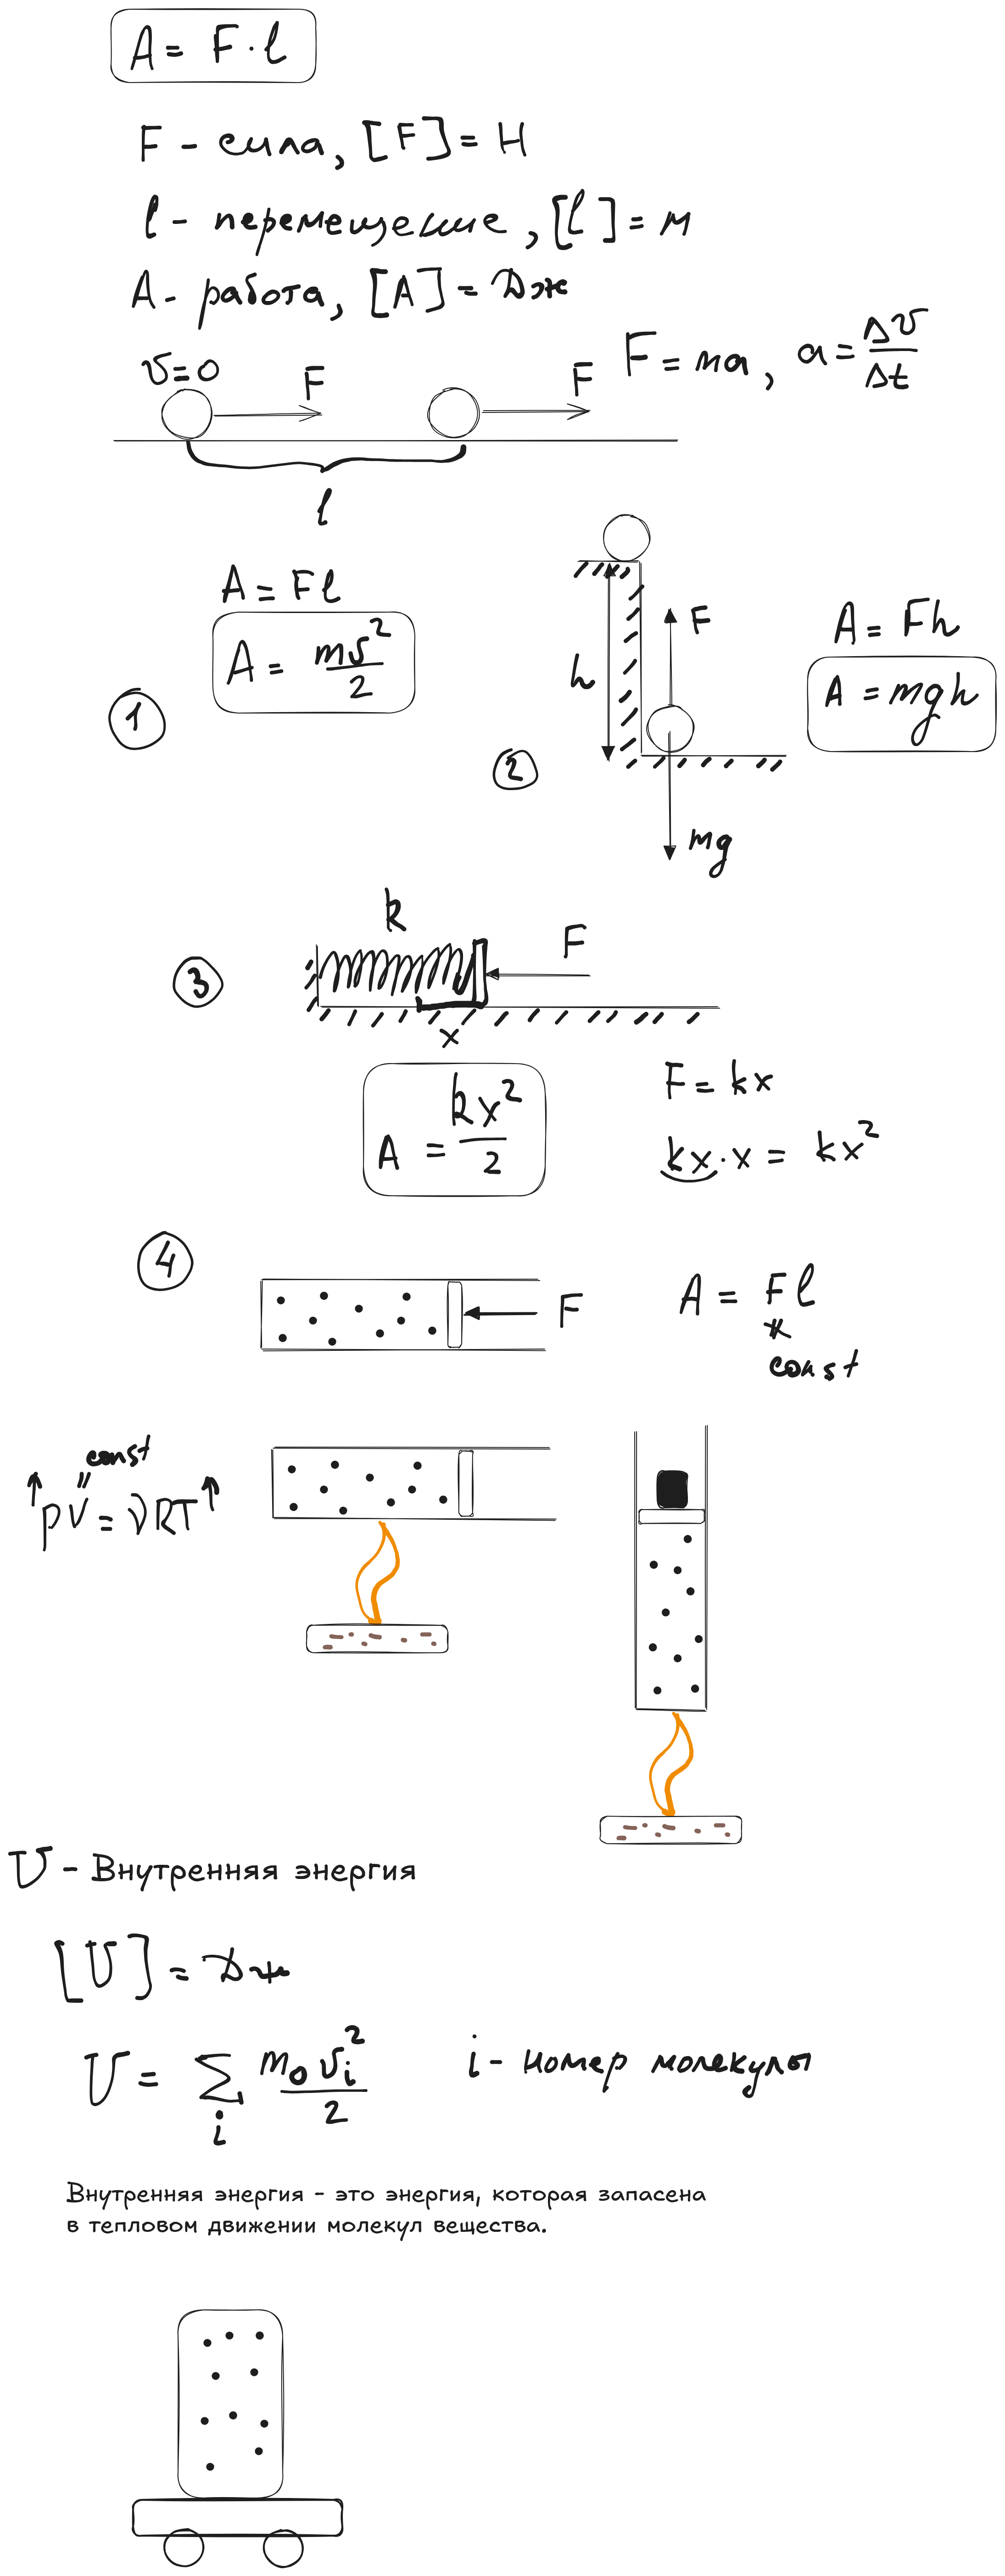 A = F · l
F - сила, [F] = Н
l - перемещение, [l] = м
A - работа, [A] = Дж
F = ma, a = Δv/Δt
v = 0
F
F
l
A = Fl
A = mv²/2
1
h
F
mg
2
A = Fh
A = mgh
3
k
F
x
A = kx²/2
F = kx
kx · x = kx²
4
F
A = Fl
const
const
pV = νRT
U - Внутренняя энергия
[U] = Дж
U = ∑ m₀vᵢ²/2
i
i - номер молекулы
Внутренняя энергия - это энергия, которая запасена
в тепловом движении молекул вещества.